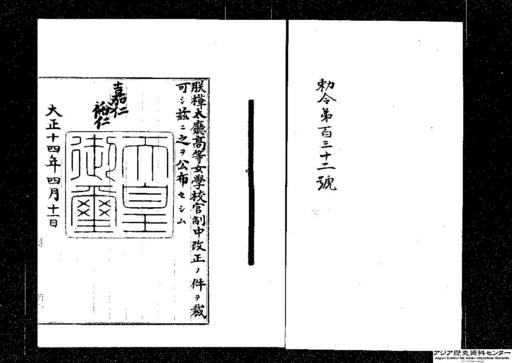 勅令第百三十二號
朕樺太廳高等女學校官制中改正ノ件ヲ裁
可シ玆ニ之ヲ公布セシム
嘉仁
裕仁
天皇
御璽
大正十四年四月十一日
アジア歴史資料センター
Japan Center for Asian Historical Records